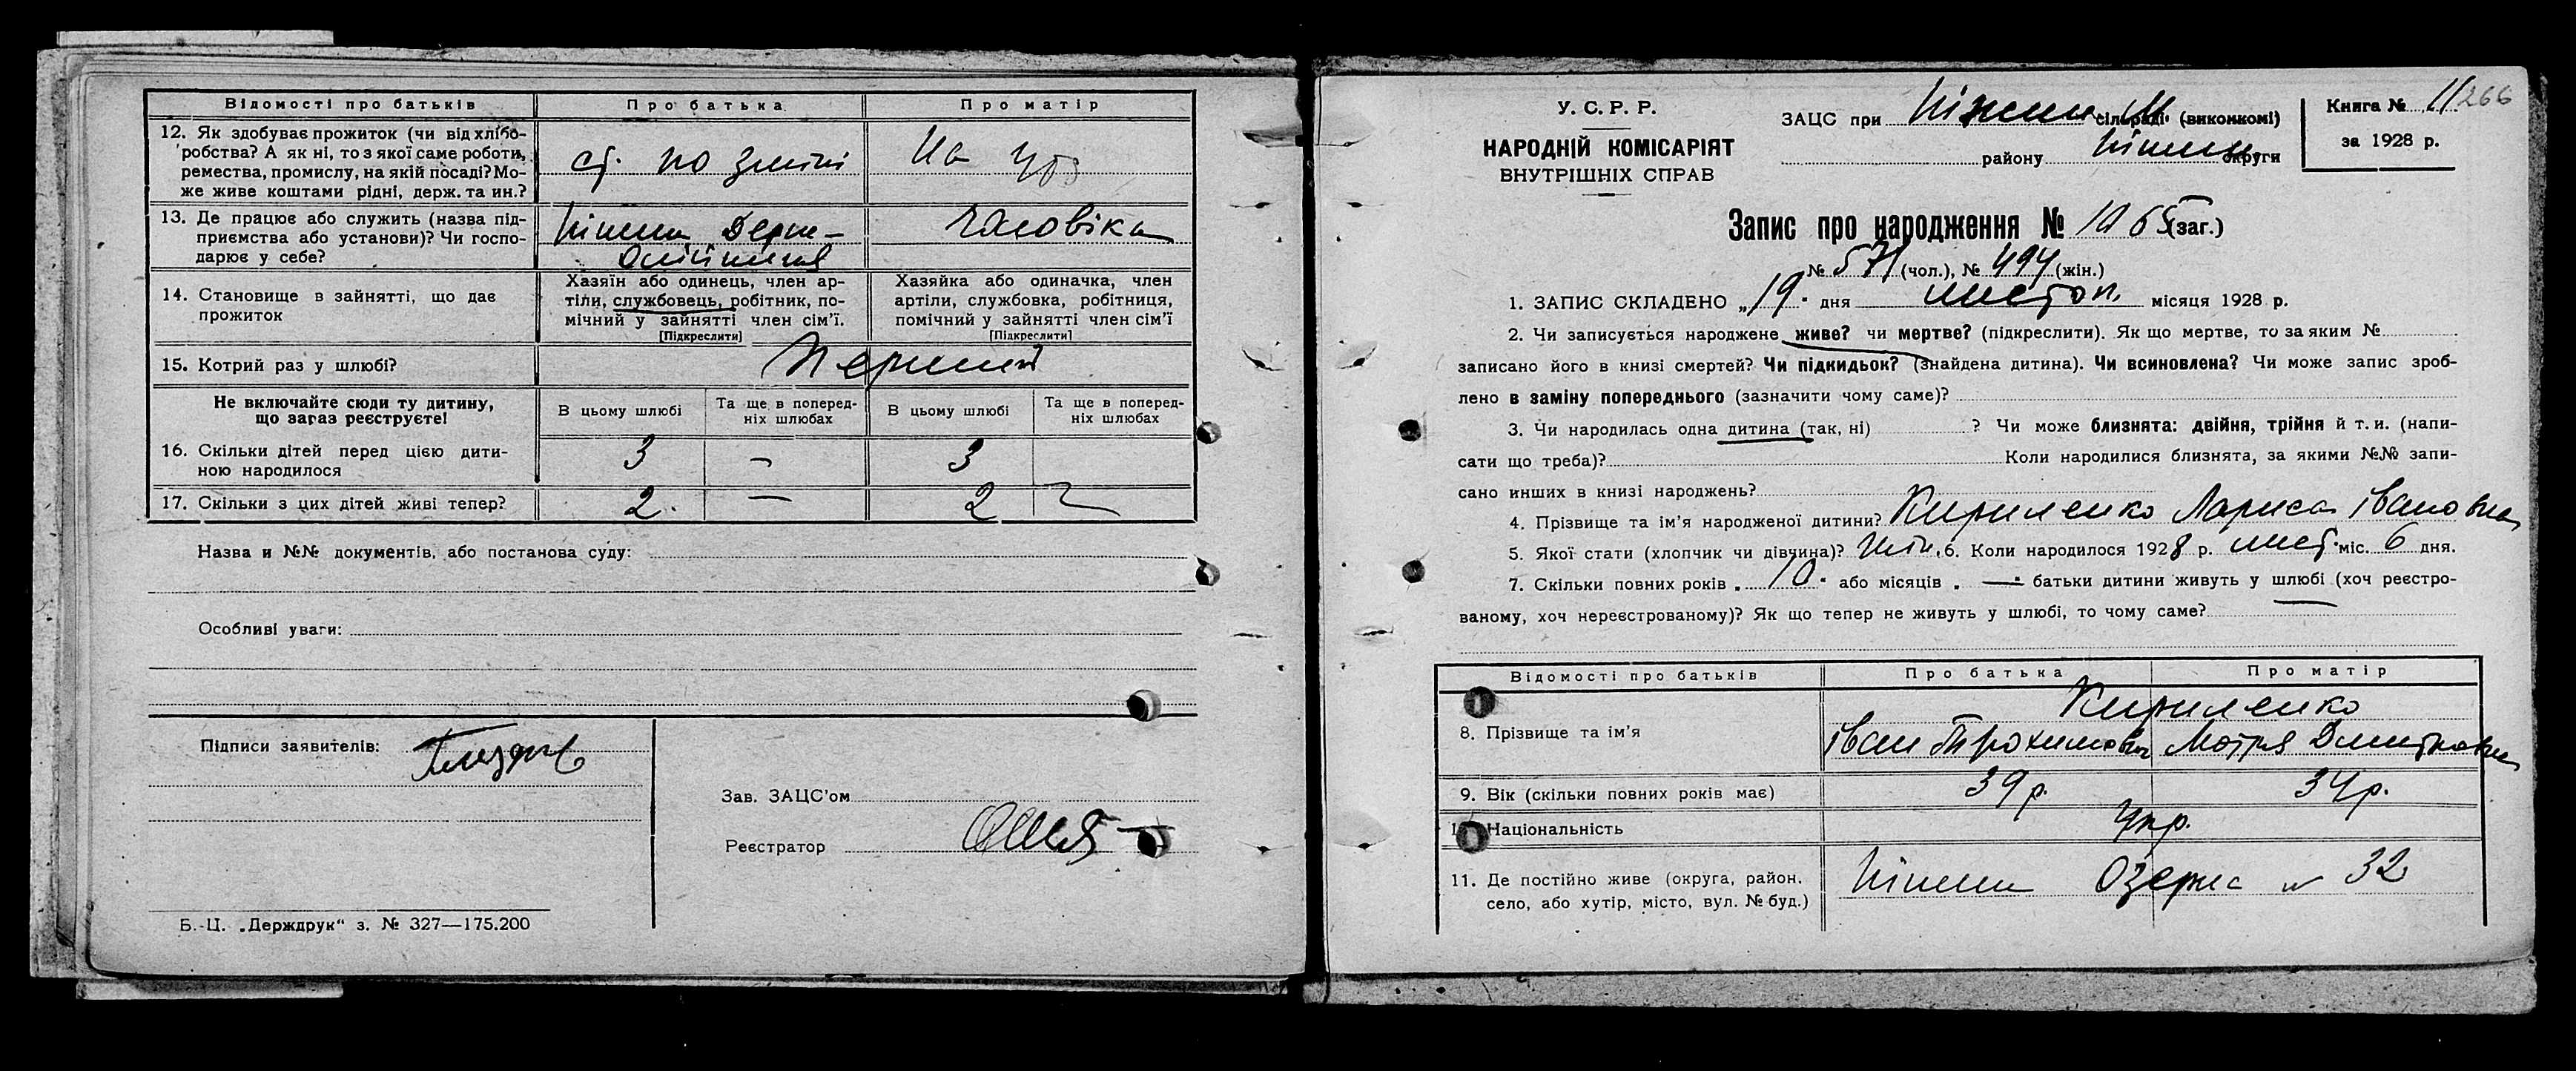 Відомості про батьків Про батька Про матір
12. Як здобуває прожиток (чи від хлібо-
робства? А як ні, то з якої саме роботи,
ремества, промислу, на якій посаді? Мо-
же живе коштами рідні, держ. та ин.?
ст. по зміні На
13. Де працює або служить (назва під-
приємства або установи)? Чи госпо-
дарює у себе?
Ніжин Держ- чоловіка
Олійниця
14. Становище в зайнятті, що дає
прожиток
Хазяїн або одинець, член ар-
тіли, службовець, робітник, по-
мічний у зайнятті член сім'ї.
[Підкреслити]
Хазяйка або одиначка, член
артіли, службовка, робітниця,
помічний у зайнятті член сім'ї
[Підкреслити]
15. Котрий раз у шлюбі? Перший
Не включайте сюди ту дитину,
що зараз реєструєте!
В цьому шлюбі Та ще в поперед-
ніх шлюбах
В цьому шлюбі Та ще в поперед-
ніх шлюбах
16. Скільки дітей перед цією дити-
ною народилося
3 — 3
17. Скільки з цих дітей живі тепер? 2. — 2
Назва и №№ документів, або постанова суду:
Особливі уваги:
Підписи заявителів:
Зав. ЗАЦС'ом
Реєстратор
Б.-Ц. „Держдрук“ з. № 327—175.200
У. С. Р. Р.
НАРОДНІЙ КОМІСАРІЯТ
ВНУТРІШНІХ СПРАВ
ЗАЦС при Ніжин. М. сільраді (виконкомі)
району Ніжин. округи
Книга № 11 266
за 1928 р.
Запис про народження № 1065 (заг.)
№ 571 (чол.), № 494 (жін.)
1. ЗАПИС СКЛАДЕНО „19. дня листоп. місяця 1928 р.
2. Чи записується народжене живе? чи мертве? (підкреслити). Як що мертве, то за яким №
записано його в книзі смертей? Чи підкидьок? (знайдена дитина). Чи всиновлена? Чи може запис зроб-
лено в заміну попереднього (зазначити чому саме)?
3. Чи народилась одна дитина (так, ні) ? Чи може близнята: двійня, трійня й т. и. (напи-
сати що треба)? Коли народилися близнята, за якими №№ запи-
сано инших в книзі народжень?
4. Прізвище та ім'я народженої дитини? Кириленко Лариса Івановна
5. Якої стати (хлопчик чи дівчина)? Жін. 6. Коли народилося 1928 р. лист. міс. 6 дня.
7. Скільки повних років „ 10. або місяців „ — батьки дитини живуть у шлюбі (хоч реєстро-
ваному, хоч нереєстрованому)? Як що тепер не живуть у шлюбі, то чому саме?
Відомості про батьків Про батька Про матір
Кириленко
8. Прізвище та ім'я Іван Трохимович Мотря Дмитровна
9. Вік (скільки повних років має) 39 р. 34 р.
10. Національність Укр.
11. Де постійно живе (округа, район,
село, або хутір, місто, вул. № буд.)
Ніжин Озерна № 32